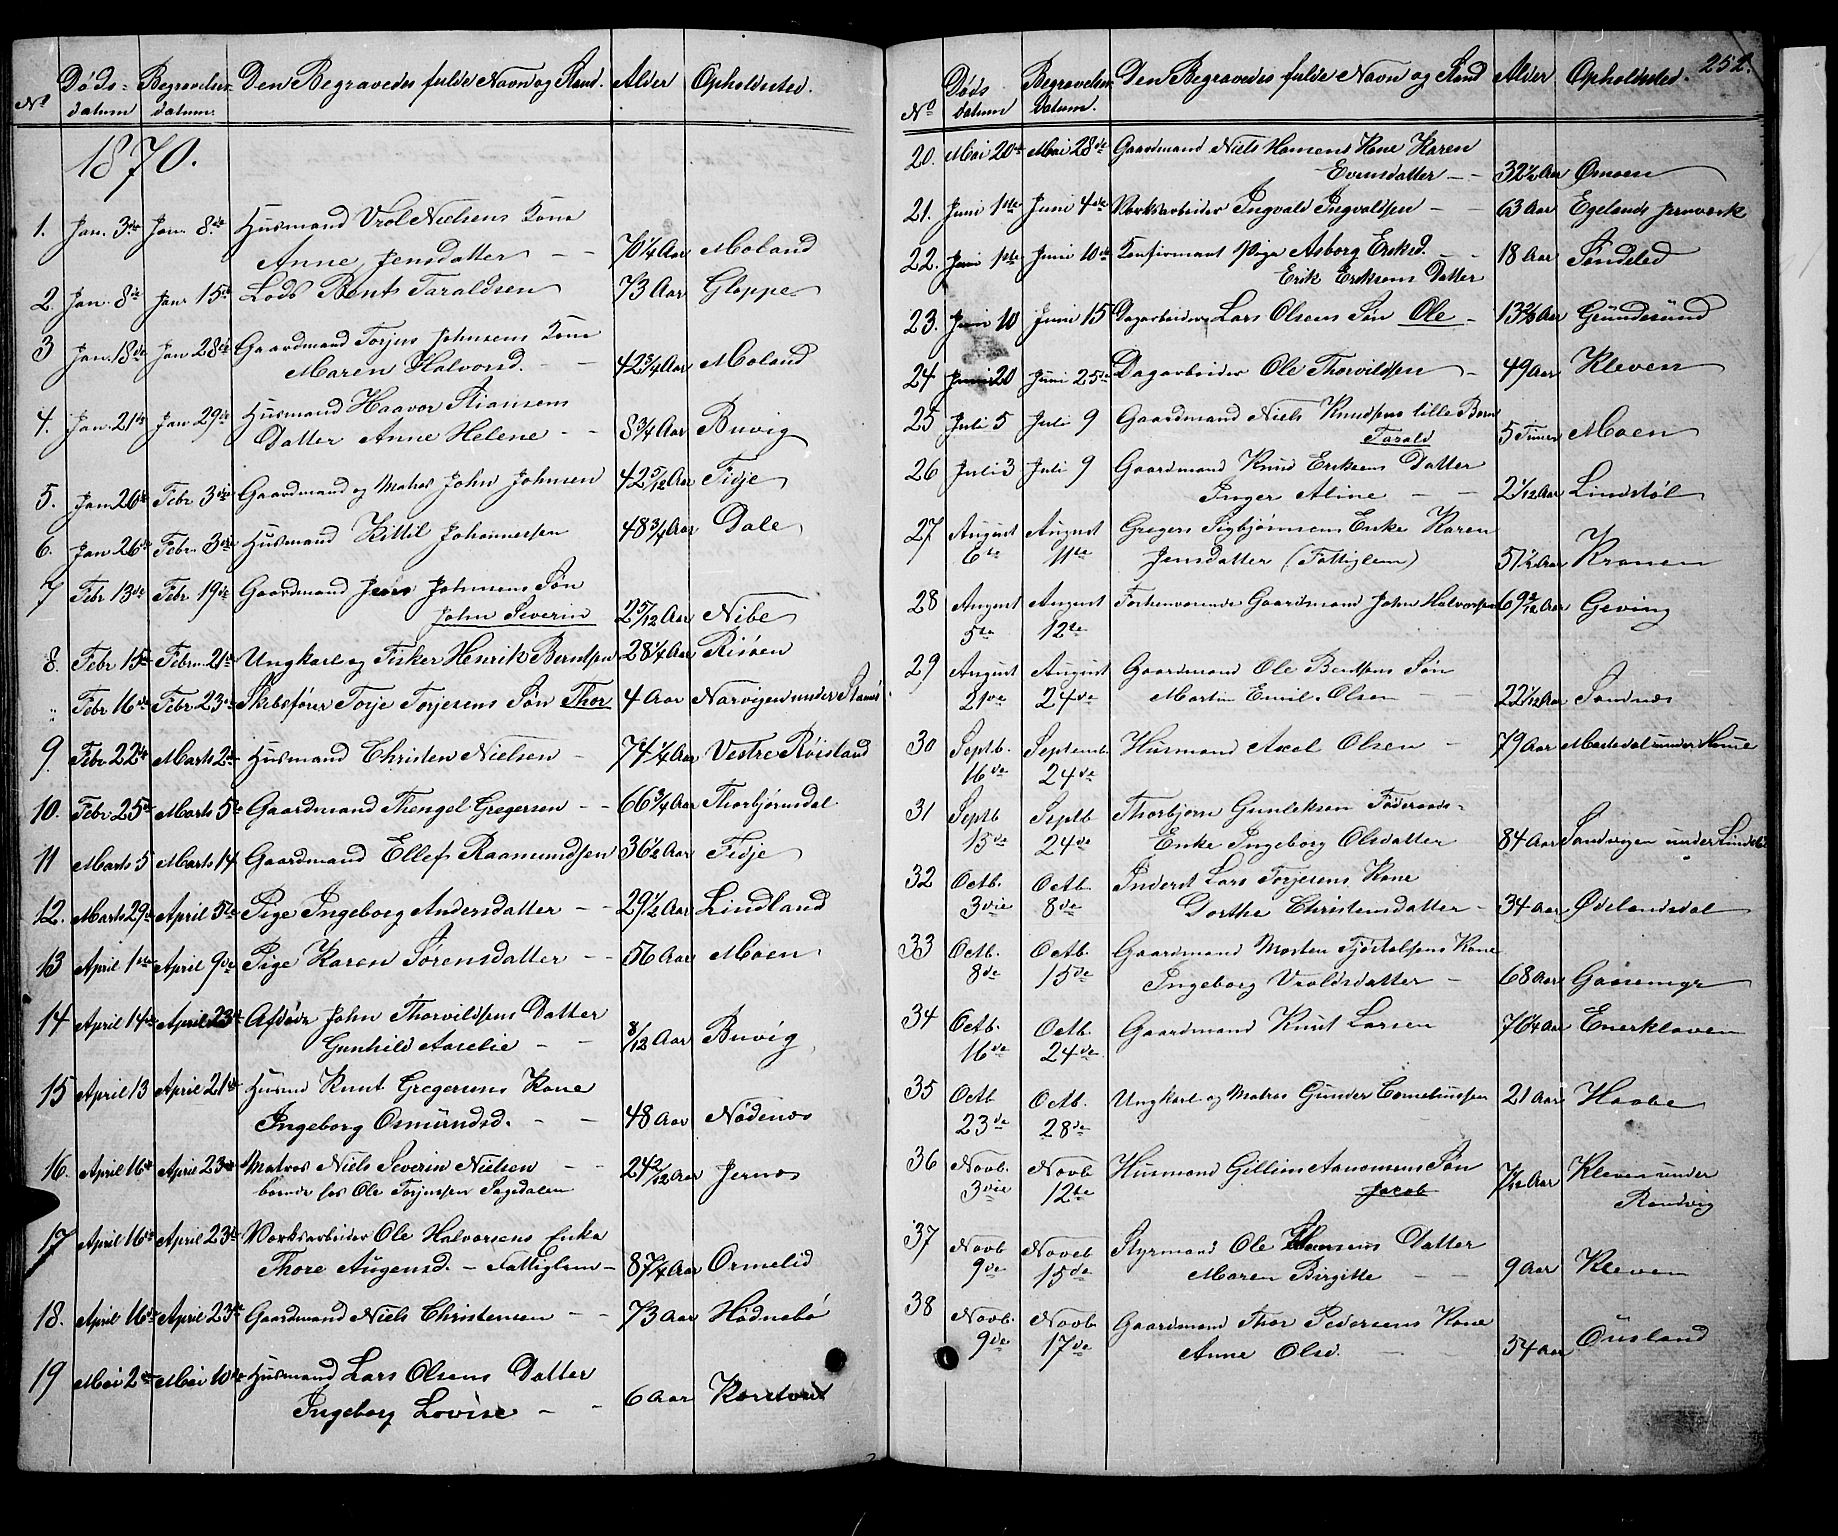 No Døds- datum Begravelses- datum. Den Begravedes fulde Navn og Stand. Alder Opholdssted.
1870.
1. Jan. 3die Jan. 8de Husmand Vrol Nielsens Kone
Anne Jensdatter - - 70 1/4 Aar Moland
2. Jan. 8de Janr 15de Lods Bent Taraldsen 73 Aar Gloppe
3 Jan. 18de Jan 28de Gaardmand Torjus Johnsens Kone
Maren Halvorsd. - - 42 3/4 Aar Moland
4. Jan. 21de Jan 29de Husmand Haavor Stiansens
Datter Anne Helene - - 8 3/4 Aar Buvig
5. Jan 26de Febr 3die Gaardmand og Matros John Johnsen 42 5/12 Aar Fidje
6. Jan 26de Febr. 3die Husmand Kittil Johannessen 48 3/4 Aar Dale
7 Febr 13de Febr. 19de Gaardmand Jens Johnsens Søn
John Severin 2 5/12 Aar Nibe
8. Febr 15de Febru 21de Ungkarl og Fisker Henrik Berntsen 28 1/4 Aar Risøen
" Febr 16de Febr. 23de Skibsfører Torje Torjesens Søn Thor 4 Aar Narvigen under
9. Febr. 22de Marts 2den Husmand Christen Nielsen - 74 1/4 Aar Vestre Røisland
10. Febr. 25de Marts 5te Gaardmand Thengel Gregersen - - 66 3/4 Aar Thorbjørnsdal
11 Marts 5 Marts 14 Gaardmand Ellef Raamundsen 36 1/2 Aar Fidje
12. Marts 29de April 5te Pige Ingeborg Andersdatter - - 29 1/2 Aar Lindland
13 April 1ste April 9de Pige Karen Sørensdatter - - 56 Aar Moen
14 April 14de April 23de Afdøde John Thorvildsens Datter
Gunhild Aurelie - - 8/12 Aar Buvig
15 April 13 April 21de Husmd Knut Gregersens Kone
Ingeborg Osmundsd. - - 48 Aar Nødenæs
16. April 16de April 23de Matros Niels Severin Nielsen - - 24 2/12 Aar Jernæs
boende hos Ole Torjussen Sagedalen
17 April 16de April 23de Værksarbeider Ole Halvorsens Enke
Thore Augensd. - Fattiglem - 87 1/4 Aar Ormelid
18. April 16de April 23de Gaardmand Niels Christensen - - 73 Aar Hødnebø
19 Mai 2den Mai 10de Husmand Lars Olsens Datter
Ingeborg Lovise - - 6 Aar
252.
No Døds datum Begravelses Datum. Den Begravedes fulde Navn og Stand Alder Opholdssted.
20. Mai 20de Mai 28de Gaardmand Niels Hansens Kone Karen
Evensdatter - - 32 1/2 Aar Øsmoen
21. Juni 1ste Juni 4de Værksarbeider Ingvald Ingvaldsen - - 63 Aar Egelands Jernværk
22. Juni 1ste Juni 10de Konfirmant Pige Asborg Eriksd. - - 18 Aar Søndeled
Erik Eriksens Datter
23. Juni 10 Juni 15 Dagarbeider Lars Olsens Søn Ole - 13 2/3 Aar Grundesund
24 Juni 20 Juni 25de Dagarbeider Ole Thorvildsen - 49 Aar Kleven
25 Juli 5 Juli 9 Gaardmand Niels Knudsens lille Barn
Tarald 5 Timer Moen
26 Juli 3 Juli 9 Gaardmand Knud Eriksens Datter
Inger Aline - - 2 1/12 Aar Lindstøl
27 August 6te August 11te Gregers Sigbjørnsens Enke Karen
Jensdatter (Fattiglem) 51 1/2 Aar Kranen
28 August 5te August 12te Forhenværende Gaardmand John Halvorsen 69 2/12 Aar Geving
29 August 21de August 24de Gaardmand Ole Bentsens Søn
Martin Emil Olsen - - 22 1/12 Aar Sandnæs
30 Septb. 16de Septemb. 24de Husmand Axel Olsen - 79 Aar Mærdedal under
31 Septb 15de Septb 24de Thorbjørn Gunleksen Føderaads-
Enke Ingeborg Olsdatter 84 Aar Sandvigen under Lindstøl
32 Octb. 3die Octb. 8de Inderst Lars Torjesens Kone
Dorthe Christensdatter - 34 Aar Ødelandsdal
33 Octb. 8de Octb. 15de Gaardmand Morten Tjøstolsens Kone
Ingeborg Vroldsdatter - 68 Aar Gaasemyr
34 Octb. 16de Octb. 24de Gaardmand Knut Larsen 76 1/4 Aar Enerkleven
35 Octb 23de Octb. 28de Ungkarl og Matros Gunder Corneliussen 21 Aar Haabe
36 Novb. 3die Novb 12te Husmand Gillem Aanonsens Søn
Jacob 7/12 Aar Kleven under
Randvig
37 Novb 9de Noveb 15de Styrmand Ole Hansens Datter
Maren Birgitte - - 9 Aar Kleven
38 Novb. 9de Novb. 17de Gaardmand Thor Pedersens Kone
Anne Olsd. - - 54 Aar Ousland